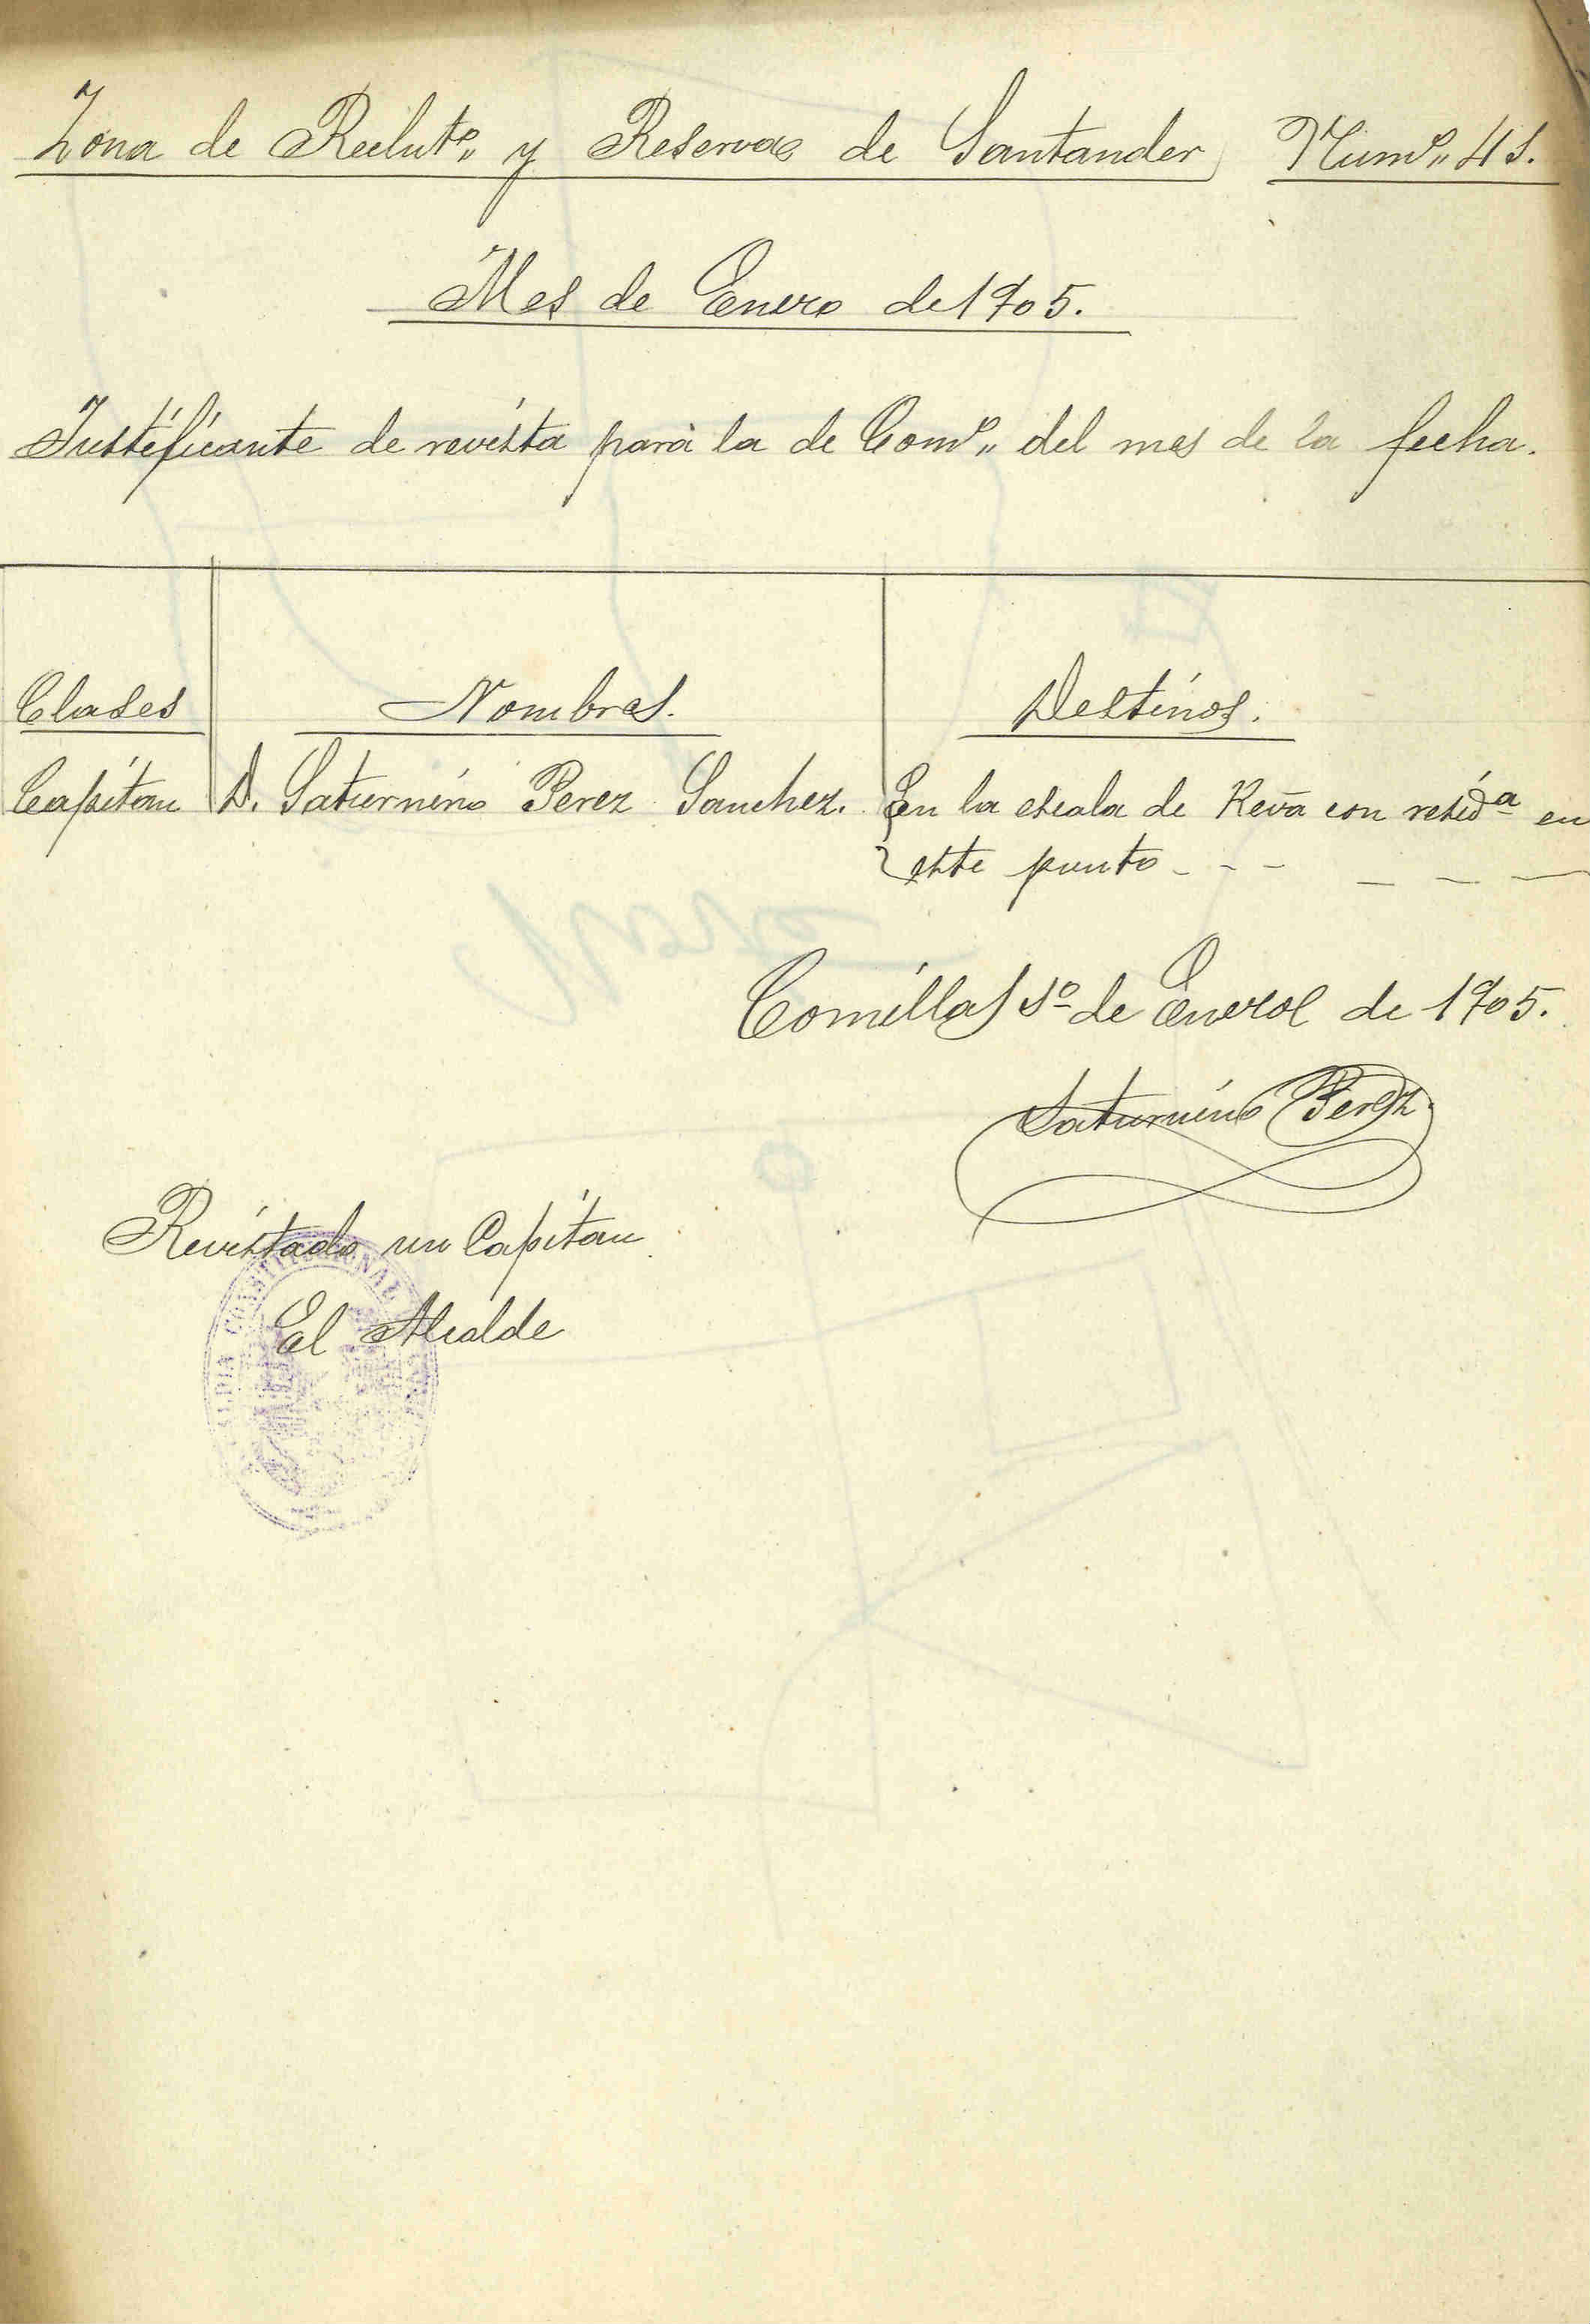 Zona de Reclutº" y Reservas de Santander, Numº" 41.
Mes de Enero de 1905.
Justificante de revista para la de Comº" del mes de la fecha.
Clases Nombres. Destinos.
Capitan D. Saturnino Perez Sanchez. En la escala de Reva con residª en
este punto - - - - - -
Comillas 1º de Enero de 1905.
Saturnino Perez
Revistado un Capitan
El Alcalde